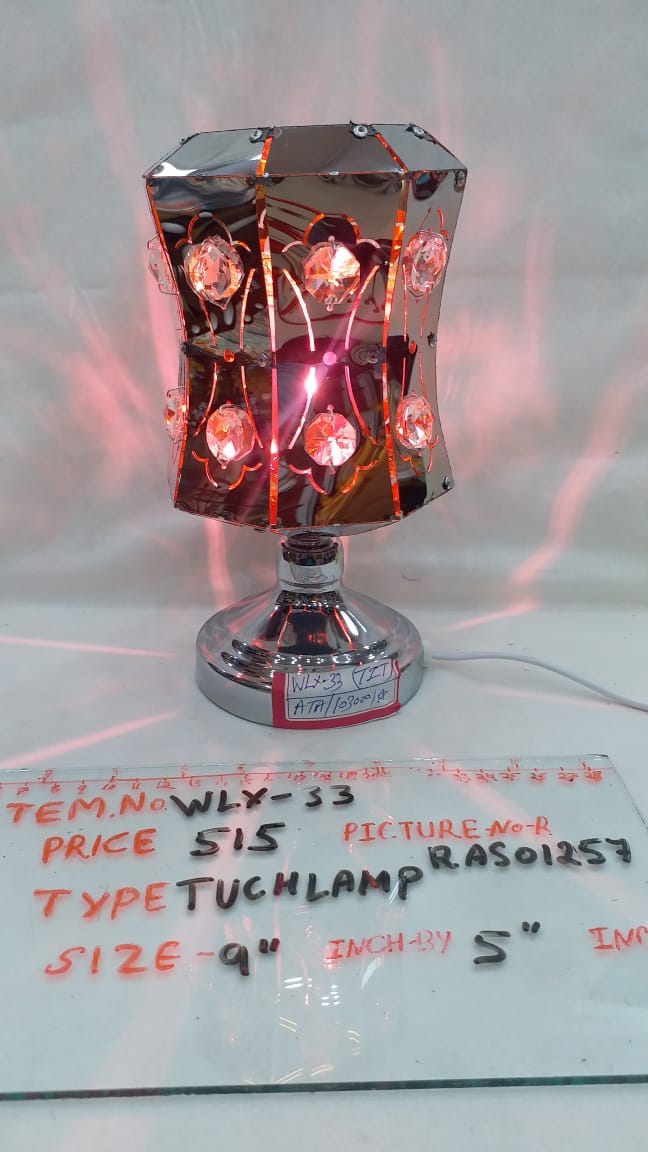 WLX-33 (TIT)
ATA/103001/
TEM.No. WLX-33
PRICE 515 PICTURE-No-R
RAS01257
TYPE TUCHLAMP
SIZE-9" INCH-BY 5" IN